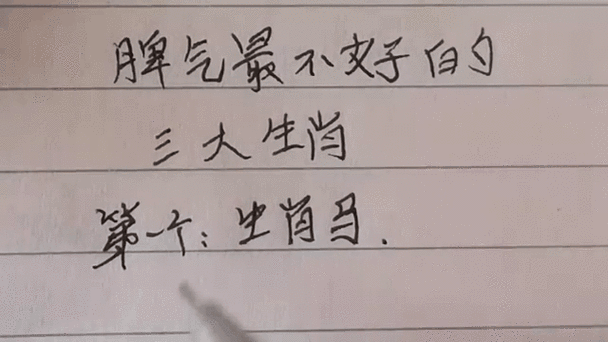 脾气最不好的
三大生肖
第一个：生肖马.